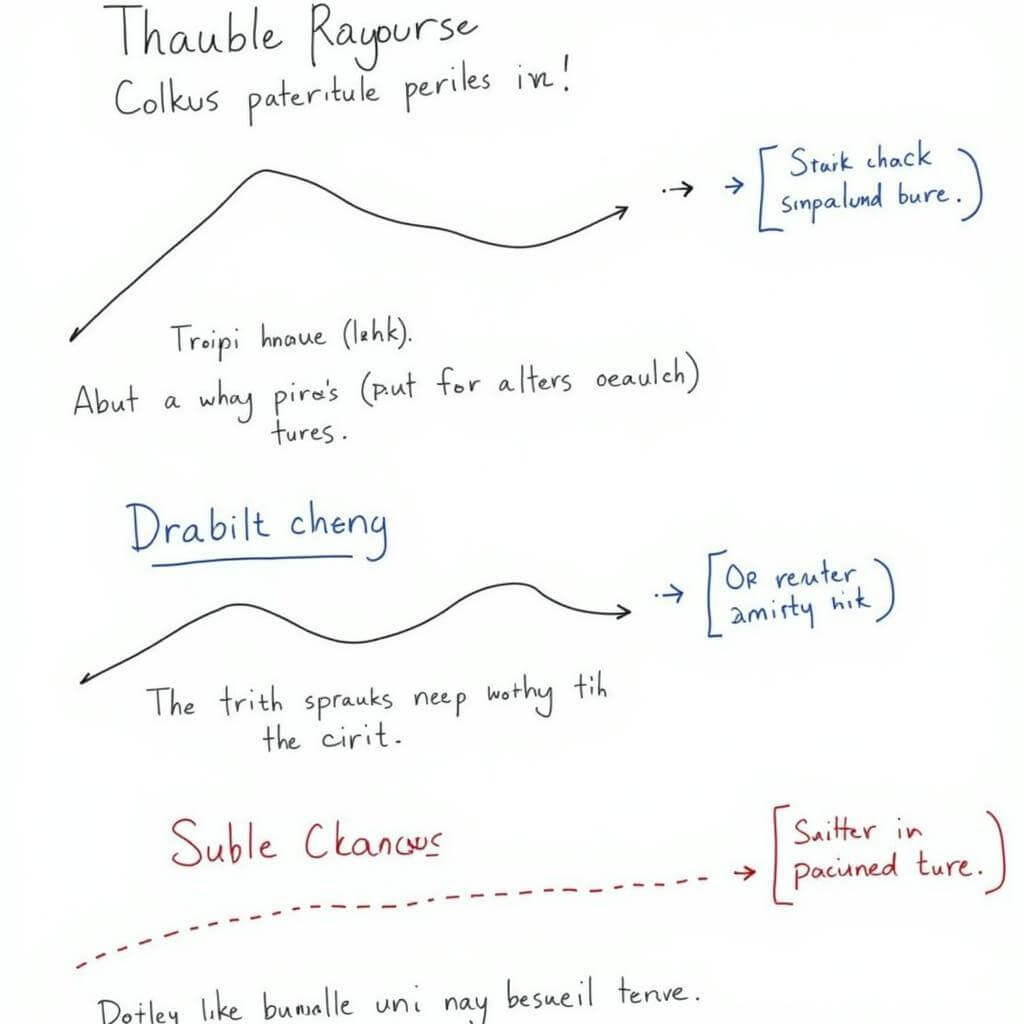 Thauble Rayourse
Colkus pateritule periles in!
Stark chack
simpalund bure.
Troipi hnaue (lahk).
Abut a whay piroe's (put for alters oeaulch)
tures.
Drabilt cheng
OR reuter
amirty hik
The trith sprauks neep wothy tih
the cirit.
Suble Ckancus
Suitter in
paciuned ture.
Dotley like bumalle uni nay besueil tenve.